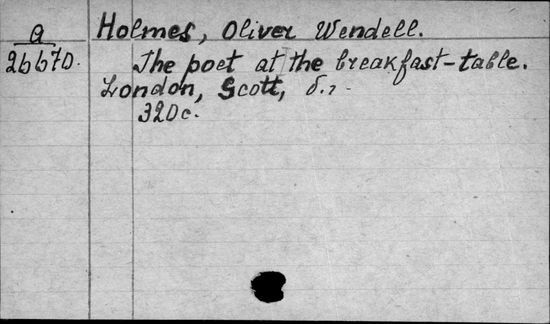 Holmes, Oliver Wendell.
a
26670.
The poet at the breakfast-table.
London, Scott,
320c.